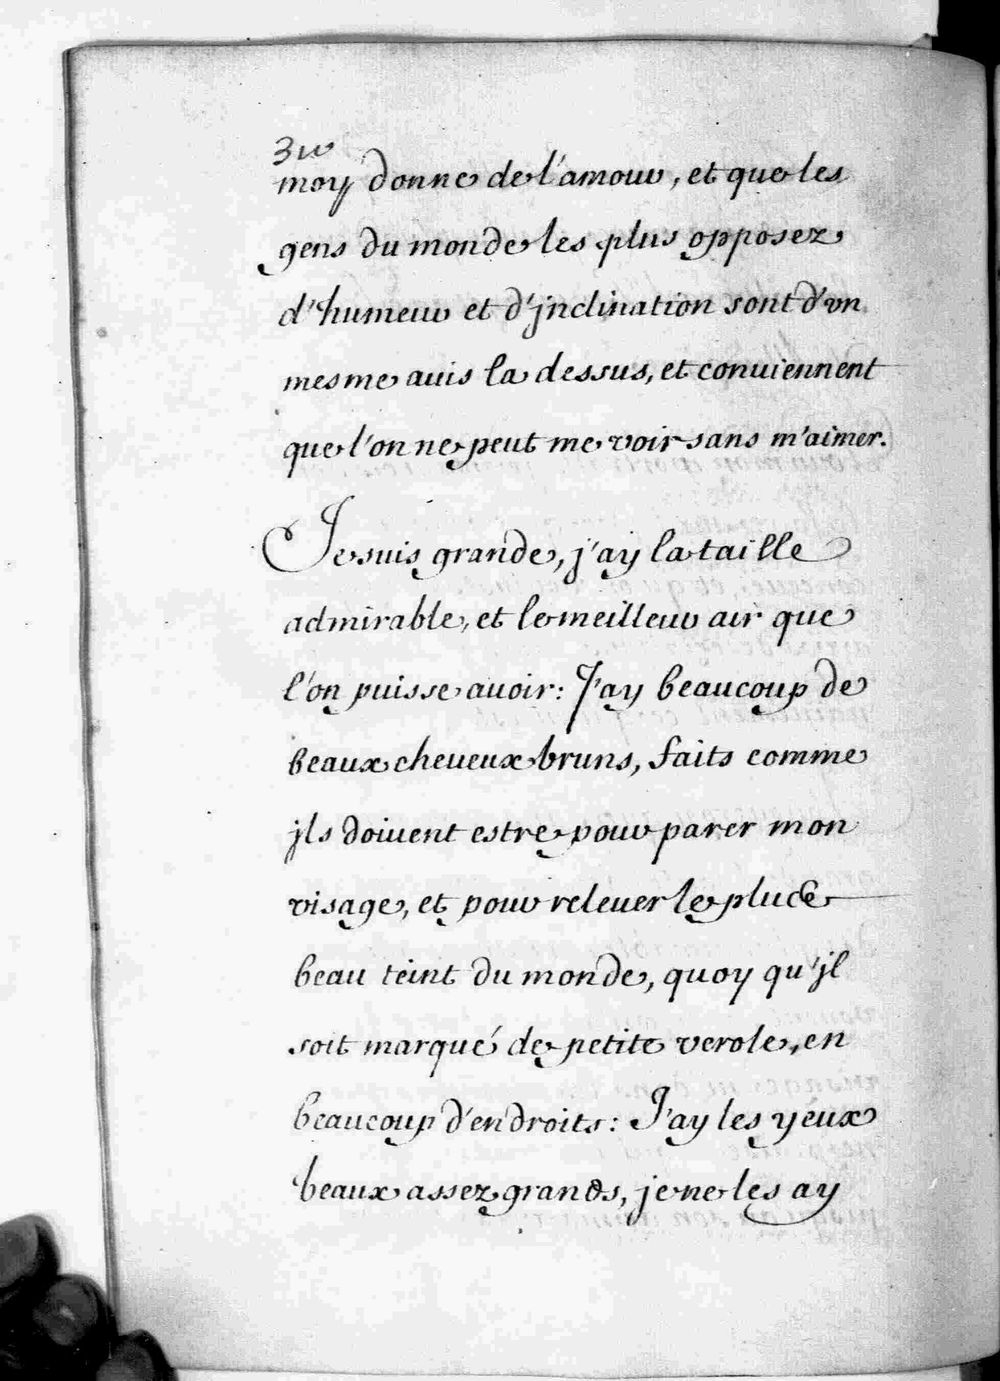 312
moy donne de l'amour, et que les
gens du monde les plus opposez
d'humeur et d'jnclination sont d'vn
mesme auis la dessus, et conuiennent
que l'on ne peut me voir sans m'aimer.
Je suis grande, j'ay la taille
admirable, et le meilleur air que
l'on puisse auoir: J'ay beaucoup de
beaux cheueux bruns, faits comme
jls doiuent estre pour parer mon
visage, et pour releuer le plus
beau teint du monde, quoy qu'jl
soit marqué de petite verole, en
beaucoup d'endroits: J'ay les yeux
beaux assez grands, je ne les ay